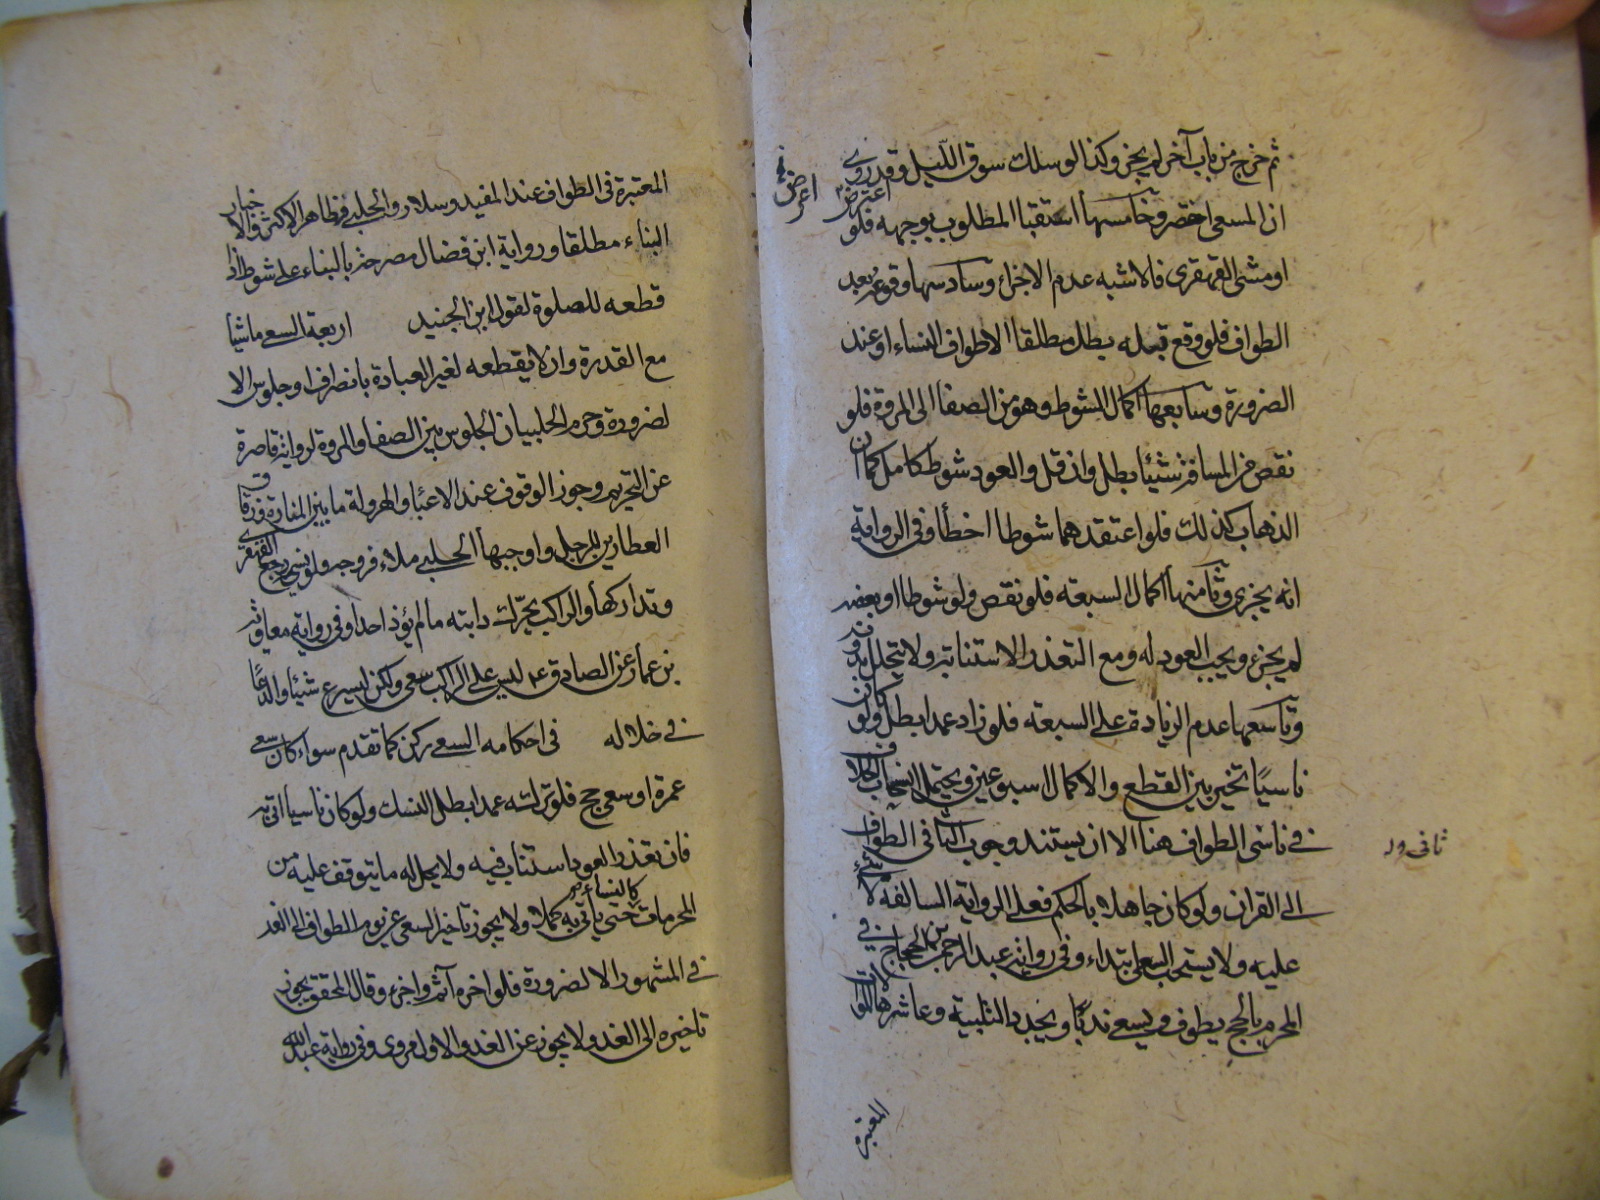 ثم خرج من باب آخر لم يجز وكذا لو سلك سوق الليل وقد روى
ان المسعى اختصر وخامسها استقبال المطلوب بوجهه فلو اعترض
اعرض
او مشى القهقرى فالاشبه عدم الاجزاء وسادسها وقوعه بعد
الطواف فلو وقع قبله بطل مطلقا الا طواف النساء او عند
الضرورة وسابعها اكمال الشوط وهو من الصفا الى المروة فلو
نقص من المسافة شيئا بطل وان قل والعود شوط كامل كما ان
الذهاب كذلك فلو اعتقدهما شوطا اخطأ وفى الرواية
انه يجزى وثامنها اكمال السبعة فلو نقص ولو شوطا او بعضه
لم يجزء ويجب العود له ومع التعذر الاستنابة ولا يتحلل بدون
وتاسعها عدم الزيادة على السبعة فلو زاد عمدا بطل ولو كان
ناسيا تخير بين القطع والاكمال اسبوعين ويحتمل انسحاب الخلاف
فى ناسى الطواف هنا الا ان يستند وجوب الثانى فى الطواف
ثانى وله
الى القران ولو كان جاهلا بالحكم فعلى الرواية السالفة لا شئ
عليه ولا يستحب السعى ابتداء وفى رواية عبد الرحمن بن الحجاج فى
المحرم بالحج يطوف ويسعى ندبا ويجدد التلبية وعاشرها الموالات
المعتبرة
المعتبرة فى الطواف عند المفيد وسلار والحلبى وظاهر الاكثر والاخبار
البناء مطلقا ورواية ابن فضال مصرحة بالبناء على شوط اذا
قطعه للصلوة لقول ابن الجنيد اربعة السعى ماشيا
مع القدرة وان لا يقطعه لغير العبادة بانصراف او جلوس الا
لضرورة وحرم الحلبيان الجلوس بين الصفا والمروة لرواية قاصرة
عن التحريم وجوز الوقوف عند الاعياء والهرولة ما بين المنارة وزقاق
العطارين للرجل واوجبها الحلبى ملاء فروجه ولو نسى رجع القهقرى
وتداركها والراكب يحرك دابته ما لم يؤذ احدا وفى رواية معاوية
بن عمار عن الصادق ع ليس على الراكب سعى ولكن ليسرع شيئا والدعا
فى خلاله فى احكامه السعى ركن كما تقدم سواء كان سعى
عمرة او سعى حج فلو تركه عمدا بطل النسك ولو كان ناسيا اتى به
فان تعذر العود استناب فيه ولا يحل له ما يتوقف عليه من
المحرمات كالنساء حتى يأتى به كملا ولا يجوز تاخير السعى عن يوم الطواف الى الغد
فى المشهور الا لضرورة فلو اخره آثم واجزء وقال المحقق يجوز
تاخيره الى الغد ولا يجوز عن الغد والاول مروى وفى رواية عبد الله